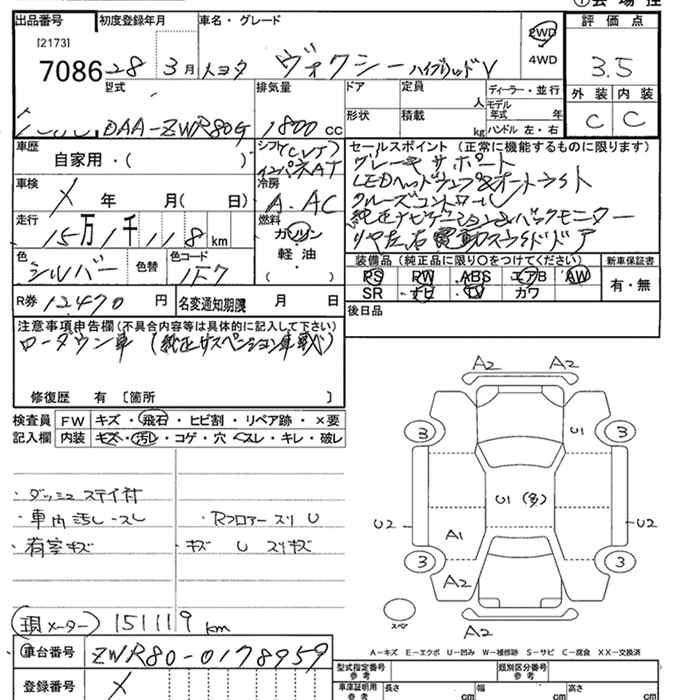 ①会場控
出品番号 初度登録年月 車名・グレード 評価点
[2173]
7086 28 3月 トヨタ ヴォクシー ハイブリッドV 2WD
4WD
3.5
型式 排気量 ドア 定員 人 ディーラー・並行
形状 積載 kg モデル年式 年
ハンドル 左・右
外装 内装
C C
DAA-ZWR80G 1800cc
車歴 自家用・( )
シフト(CVT)
インパネAT
車検 X 年 月( 日)
冷房
A.AC
走行 15万1千118km
燃料
ガソリン
軽油
・( )
色 シルバー 色替 色コード 1F7
R券 12,470円 名変通知期限 月 日
セールスポイント (正常に機能するものに限ります)
ブレーキサポート
LEDヘッドランプ&オートライト
クルーズコントロール
純正ナビゲーション&バックモニター
リヤ左右電動スライドドア
装備品 (純正品に限り〇をつけてください) 新車保証書
PS PW ABS エアB AW 有・無
SR ナビ TV カワ
後日品
注意事項申告欄(不具合内容等は具体的に記入して下さい)
ローダウン車 (純正サスペンション車載)
修復歴 有 [箇所 ]
検査員 FW キズ・飛石・ヒビ割・リペア跡・×要
記入欄 内装 キズ・汚レ・コゲ・穴・スレ・キレ・破レ
・ダッシュステイ付
・車内汚レ・スレ
・有室キズ
・Rフロアースリ U
・キズ U スリキズ
A2 A2
3 U1 3
U1(多)
U2 A1 U2
3 3
A2
スペア
A2
現メーター 151119km
A-キズ E-エクボ U-凹み W-補修跡 S-サビ C-腐食 XX-交換済
車台番号 ZWR80-0178959
登録番号 X
型式指定番号 参考 類別区分番号 参考
車庫証明用 参考 長さ cm 幅 cm 高さ cm